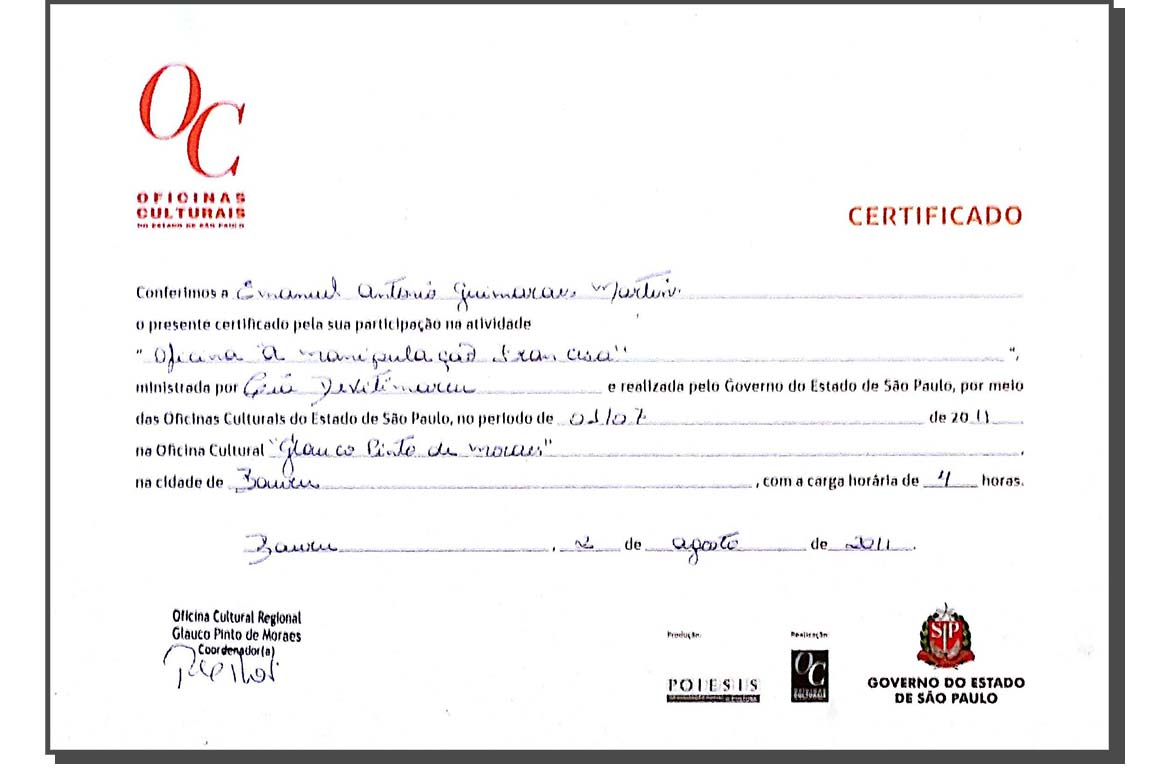 OC
OFICINAS
CULTURAIS
DO ESTADO DE SÃO PAULO
CERTIFICADO
Conferimos a Emanuel Antonio Guimaraes Martins
o presente certificado pela sua participação na atividade
" Oficina "A manipulação Francesa" ",
ministrada por e realizada pelo Governo do Estado de São Paulo, por meio
das Oficinas Culturais do Estado de São Paulo, no período de 01/07 de 2011
na Oficina Cultural "Glauco Pinto de Moraes" ,
na cidade de Bauru , com a carga horária de 4 horas.
Bauru , 2 de agosto de 2011 .
Oficina Cultural Regional
Glauco Pinto de Moraes
Coordenador(a)
Produção:
POIESIS
Realização:
OC
OFICINAS
CULTURAIS
SP
GOVERNO DO ESTADO
DE SÃO PAULO